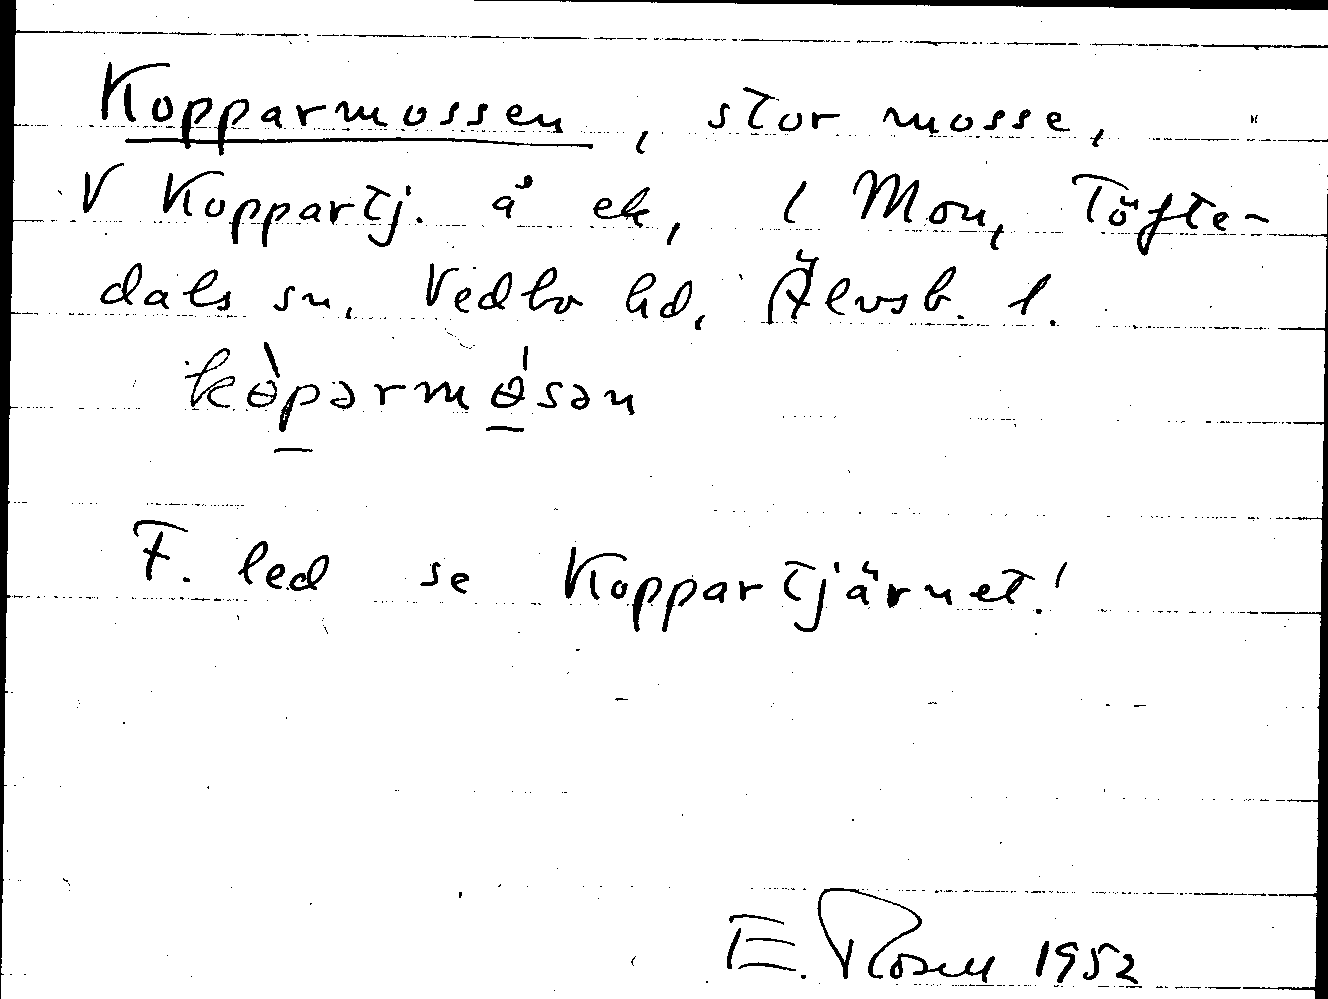 Kopparmossen, stor mosse,
V Koppartj. å ek, i Mon, Töfte-
dals sn, Vedbo hd, Älvsb. l.
kɵ̀pərmɵ́sən
F. led se Koppartjärnet!
E. Rosell 1952